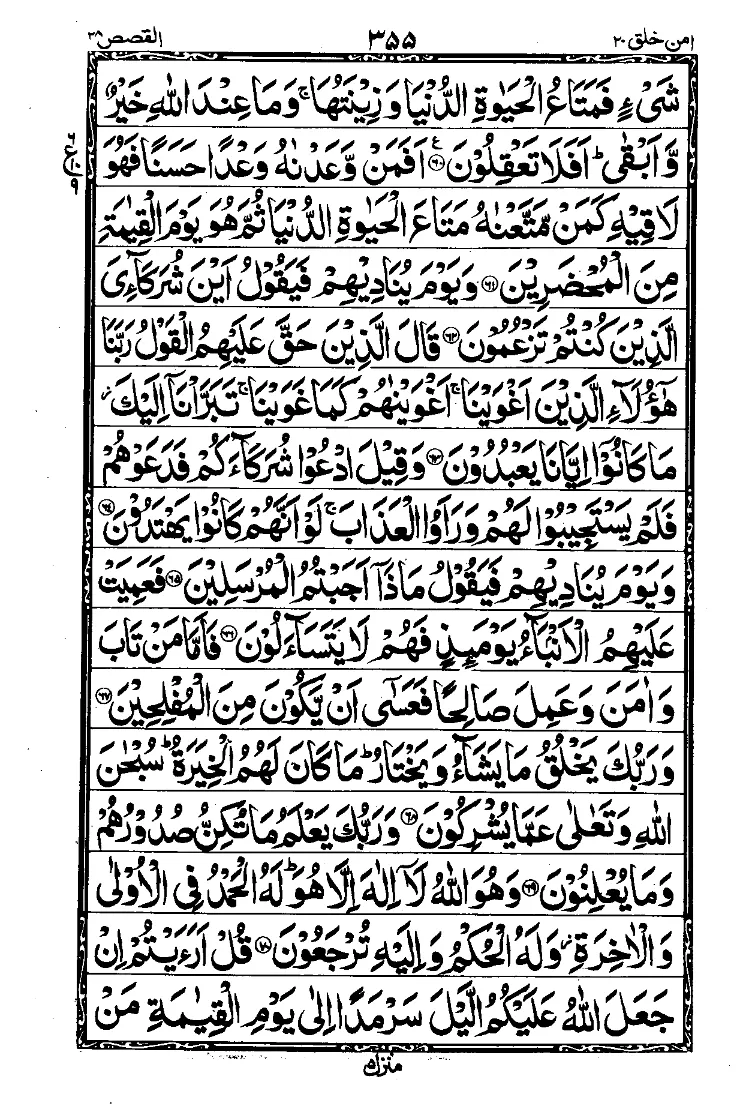 امن خلق ۲۰ ۳۵۵ القصص ۲۸
شَیْءٍ فَمَتَاعُ الْحَیٰوةِ الدُّنْیَا وَ زِیْنَتُهَا ۚ وَمَا عِنْدَ اللّٰهِ خَیْرٌ
وَّ اَبْقٰی ؕ اَفَلَا تَعْقِلُوْنَ ﴿۶۰﴾ اَفَمَنْ وَّعَدْنٰهُ وَعْدًا حَسَنًا فَهُوَ
لَاقِیْهِ كَمَنْ مَّتَّعْنٰهُ مَتَاعَ الْحَیٰوةِ الدُّنْیَا ثُمَّ هُوَ یَوْمَ الْقِیٰمَةِ
مِنَ الْمُحْضَرِیْنَ ﴿۶۱﴾ وَ یَوْمَ یُنَادِیْهِمْ فَیَقُوْلُ اَیْنَ شُرَكَآءِیَ
الَّذِیْنَ كُنْتُمْ تَزْعُمُوْنَ ﴿۶۲﴾ قَالَ الَّذِیْنَ حَقَّ عَلَیْهِمُ الْقَوْلُ رَبَّنَا
هٰۤؤُلَآءِ الَّذِیْنَ اَغْوَیْنَا ۚ اَغْوَیْنٰهُمْ كَمَا غَوَیْنَا ۚ تَبَرَّاْنَاۤ اِلَیْكَ ؗ
مَا كَانُوْۤا اِیَّانَا یَعْبُدُوْنَ ﴿۶۳﴾ وَقِیْلَ ادْعُوْا شُرَكَآءَكُمْ فَدَعَوْهُمْ
فَلَمْ یَسْتَجِیْبُوْا لَهُمْ وَ رَاَوُا الْعَذَابَ ۚ لَوْ اَنَّهُمْ كَانُوْا یَهْتَدُوْنَ ﴿۶۴﴾
وَ یَوْمَ یُنَادِیْهِمْ فَیَقُوْلُ مَاذَاۤ اَجَبْتُمُ الْمُرْسَلِیْنَ ﴿۶۵﴾ فَعَمِیَتْ
عَلَیْهِمُ الْاَنْۢبَآءُ یَوْمَىِٕذٍ فَهُمْ لَا یَتَسَآءَلُوْنَ ﴿۶۶﴾ فَاَمَّا مَنْ تَابَ
وَ اٰمَنَ وَ عَمِلَ صَالِحًا فَعَسٰۤی اَنْ یَّكُوْنَ مِنَ الْمُفْلِحِیْنَ ﴿۶۷﴾
وَ رَبُّكَ یَخْلُقُ مَا یَشَآءُ وَ یَخْتَارُ ؕ مَا كَانَ لَهُمُ الْخِیَرَةُ ؕ سُبْحٰنَ
اللّٰهِ وَ تَعٰلٰی عَمَّا یُشْرِكُوْنَ ﴿۶۸﴾ وَ رَبُّكَ یَعْلَمُ مَا تُكِنُّ صُدُوْرُهُمْ
وَ مَا یُعْلِنُوْنَ ﴿۶۹﴾ وَ هُوَ اللّٰهُ لَاۤ اِلٰهَ اِلَّا هُوَ ؕ لَهُ الْحَمْدُ فِی الْاُوْلٰی
وَ الْاٰخِرَةِ ؗ وَ لَهُ الْحُكْمُ وَ اِلَیْهِ تُرْجَعُوْنَ ﴿۷۰﴾ قُلْ اَرَءَیْتُمْ اِنْ
جَعَلَ اللّٰهُ عَلَیْكُمُ الَّیْلَ سَرْمَدًا اِلٰی یَوْمِ الْقِیٰمَةِ مَنْ
منزل ۵